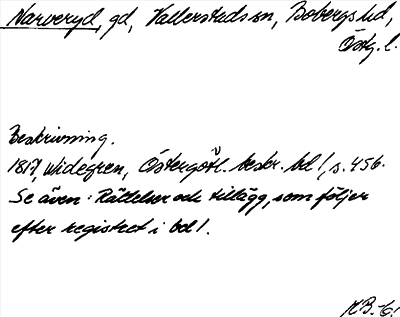 Narveryd, gd, Vallersteds sn, Bobergs hd,
Östg. l.
Beskrivning.
1817, Widegren, Östergötl. beskr. bd 1, s. 456.
Se även: Rättelser och tillägg, som följer
efter registret i bd 1.